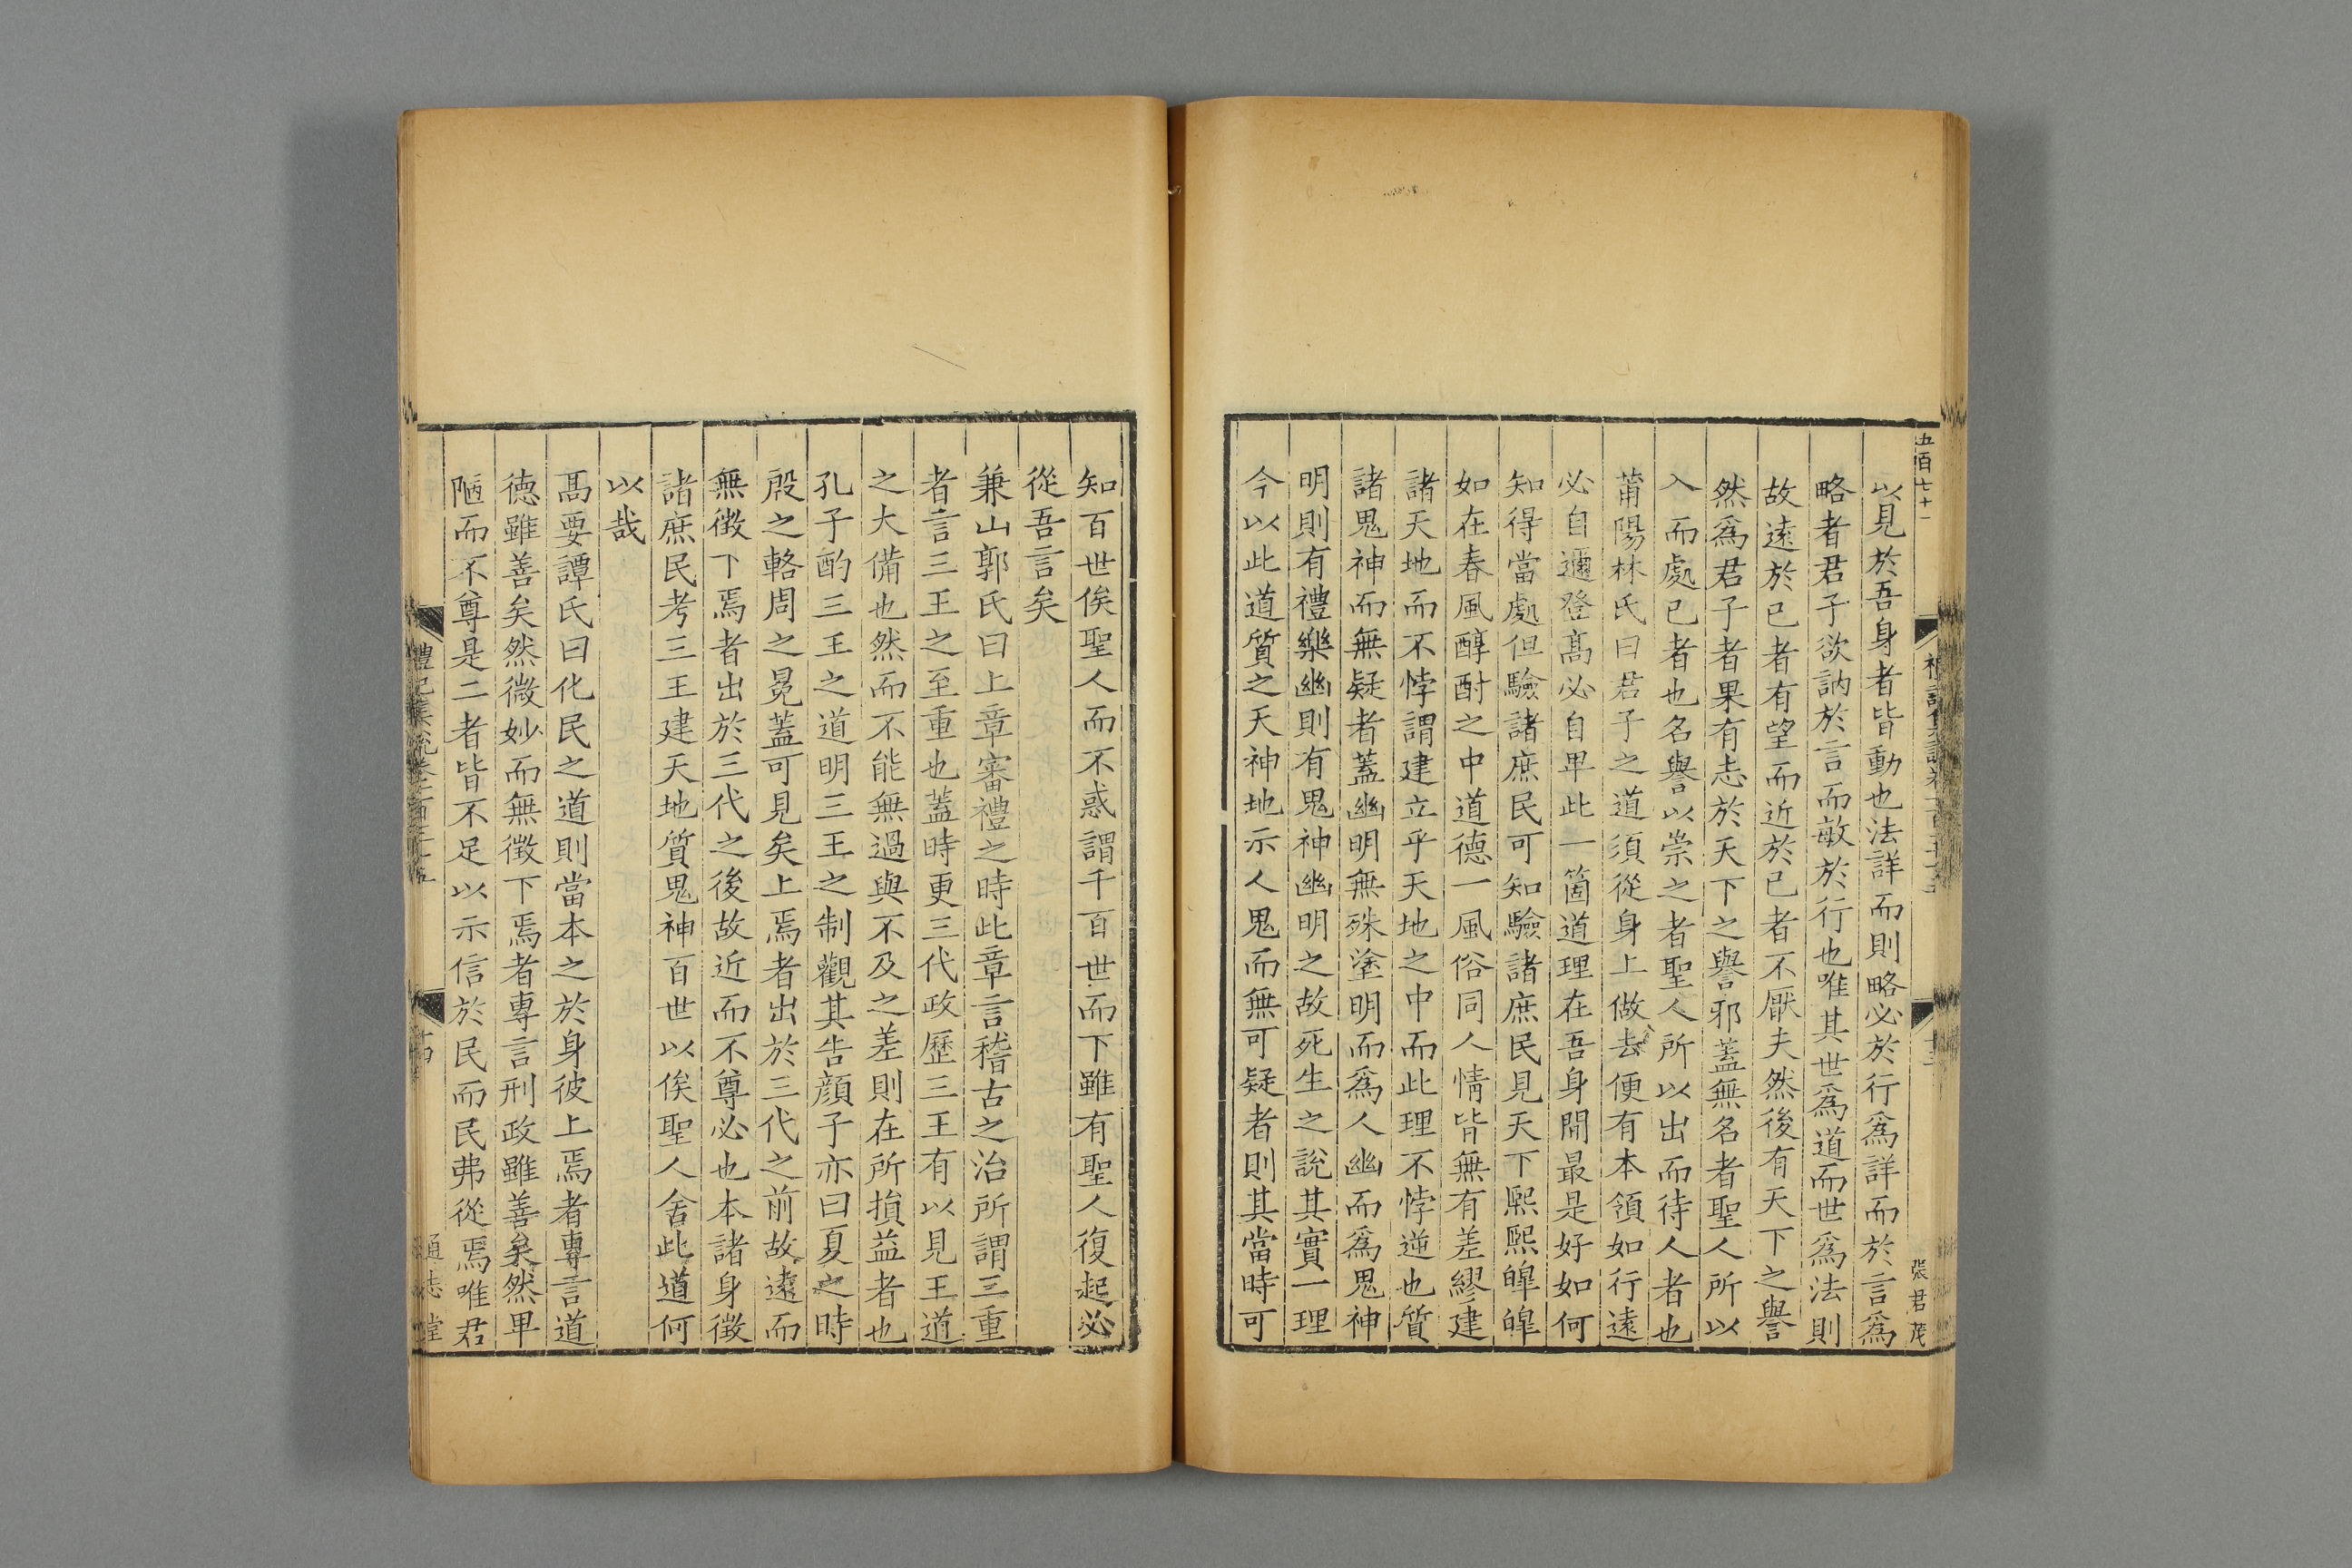 五百七十一
以見於吾身者皆動也法詳而則略必於行爲詳而於言爲
略者君子欲訥於言而敏於行也唯其世爲道而世爲法則
故遠於已者有望而近於已者不厭夫然後有天下之譽
然爲君子者果有志於天下之譽邪蓋無名者聖人所以
入而處已者也名譽以崇之者聖人所以出而待人者也
莆陽林氏曰君子之道須從身上做去便有本領如行遠
必自邇登髙必自卑此一箇道理在吾身閒最是好如何
知得當處但驗諸庶民可知驗諸庶民見天下熙熙皥皥
如在春風醇酎之中道德一風俗同人情皆無有差繆建
諸天地而不悖謂建立乎天地之中而此理不悖逆也質
諸鬼神而無疑者蓋幽明無殊塗明而爲人幽而爲鬼神
明則有禮樂幽則有鬼神幽明之故死生之說其實一理
今以此道質之天神地示人鬼而無可疑者則其當時可
張君茂
知百世俟聖人而不惑謂千百世而下雖有聖人復起必
從吾言矣
兼山郭氏曰上章審禮之時此章言稽古之治所謂三重
者言三王之至重也蓋時更三代政歷三王有以見王道
之大備也然而不能無過與不及之差則在所損益者也
孔子酌三王之道明三王之制觀其告顔子亦曰夏之時
殷之輅周之冕蓋可見矣上焉者出於三代之前故遠而
無徴下焉者出於三代之後故近而不尊必也本諸身徴
諸庶民考三王建天地質鬼神百世以俟聖人舍此道何
以哉
髙要譚氏曰化民之道則當本之於身彼上焉者專言道
德雖善矣然微妙而無徴下焉者專言刑政雖善矣然卑
陋而不尊是二者皆不足以示信於民而民弗從焉唯君
禮記集說卷一百三十五
通志堂